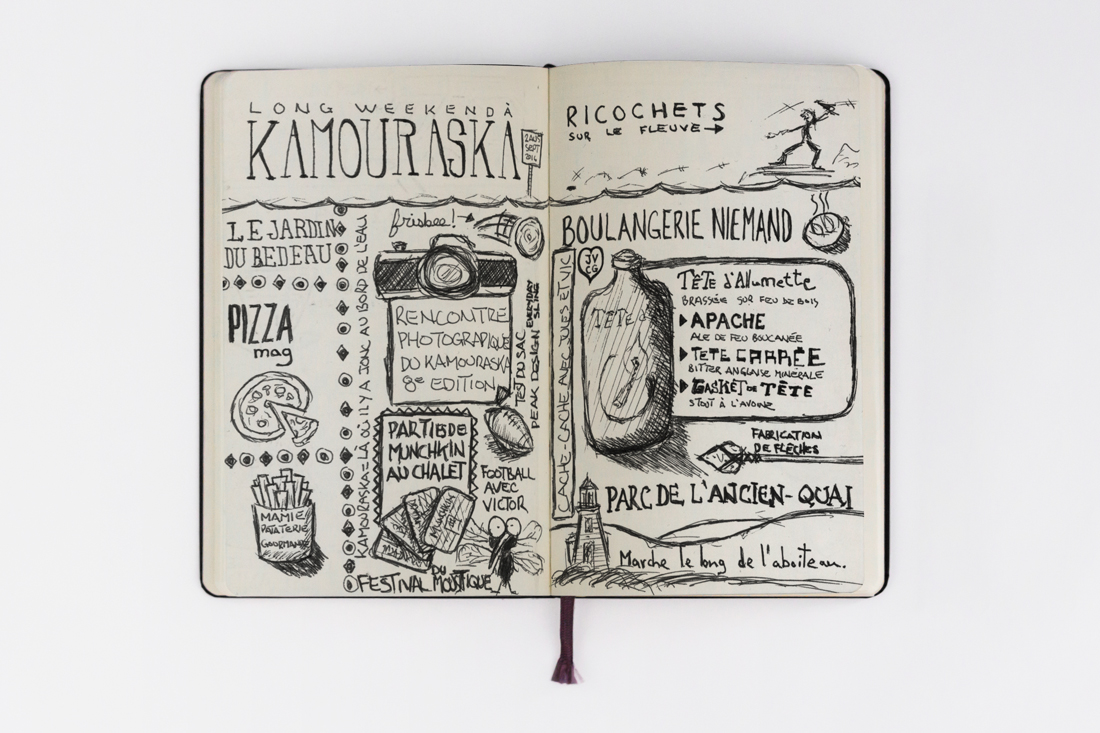 LONG WEEKEND À
KAMOURASKA
SEPT
2014
LE JARDIN
DU BEDEAU
PIZZA
mag
MAMIE
PATATERIE
GOURMANDE
KAMOURASKA = LÀ OÙ IL Y A JONC AU BORD DE L'EAU
frisbee!
RENCONTRE
PHOTOGRAPHIQUE
DU KAMOURASKA
8e EDITION
TEST DU SAC EVERYDAY
PEAK DESIGN SLING
PARTIE DE
MUNCHKIN
AU CHALET
FOOTBALL
AVEC
VICTOR
FESTIVAL DU MOUSTIQUE
RICOCHETS
SUR LE FLEUVE
BOULANGERIE NIEMAND
CACHE-CACHE AVEC JULES ET VIC
JV
CG
TETE
TÊTE d'Allumette
BRASSÉE SUR FEU DE BOIS
APACHE
ALE DE FEU BOUCANÉE
TETE CARRÉE
BITTER ANGLAISE MINÉRALE
GASKET DE TÊTE
STOUT À L'AVOINE
FABRICATION
DE FLÈCHES
PARC DE L'ANCIEN-QUAI
Marche le long de l'aboiteau.